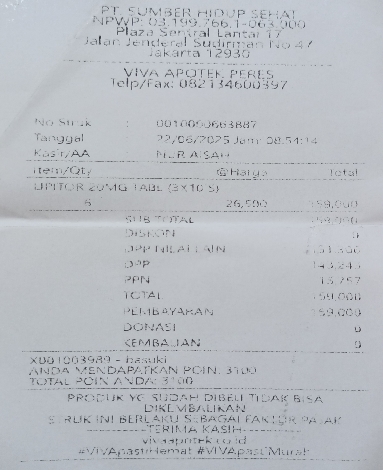 PT. SUMBER HIDUP SEHAT
NPWP: 03.199.766.1-063.000
Plaza Sentral Lantai 17
Jalan Jenderal Sudirman No 47
Jakarta 12930
VIVA APOTEK PERES
Telp/Fax: 082134600397
No Struk :
Tanggal : 22/06/2025 Jam: 08:54:14
Kasir/AA : NUR AISAH
Item/Qty @Harga Total
LIPITOR 20MG TABL (3X10'S)
6 26,500 159,000
SUB TOTAL 159,000
DISKON 0
DPP NILAI LAIN
DPP 143,243
PPN 15,757
TOTAL 159,000
PEMBAYARAN 159,000
DONASI 0
KEMBALIAN 0
X001003989 - basuki
ANDA MENDAPATKAN POIN: 3100
TOTAL POIN ANDA: 3100
PRODUK YG SUDAH DIBELI TIDAK BISA
DIKEMBALIKAN
STRUK INI BERLAKU SEBAGAI FAKTUR PAJAK
--TERIMA KASIH--
vivaapotek.co.id
#VIVApastiHemat #VIVApastiMurah